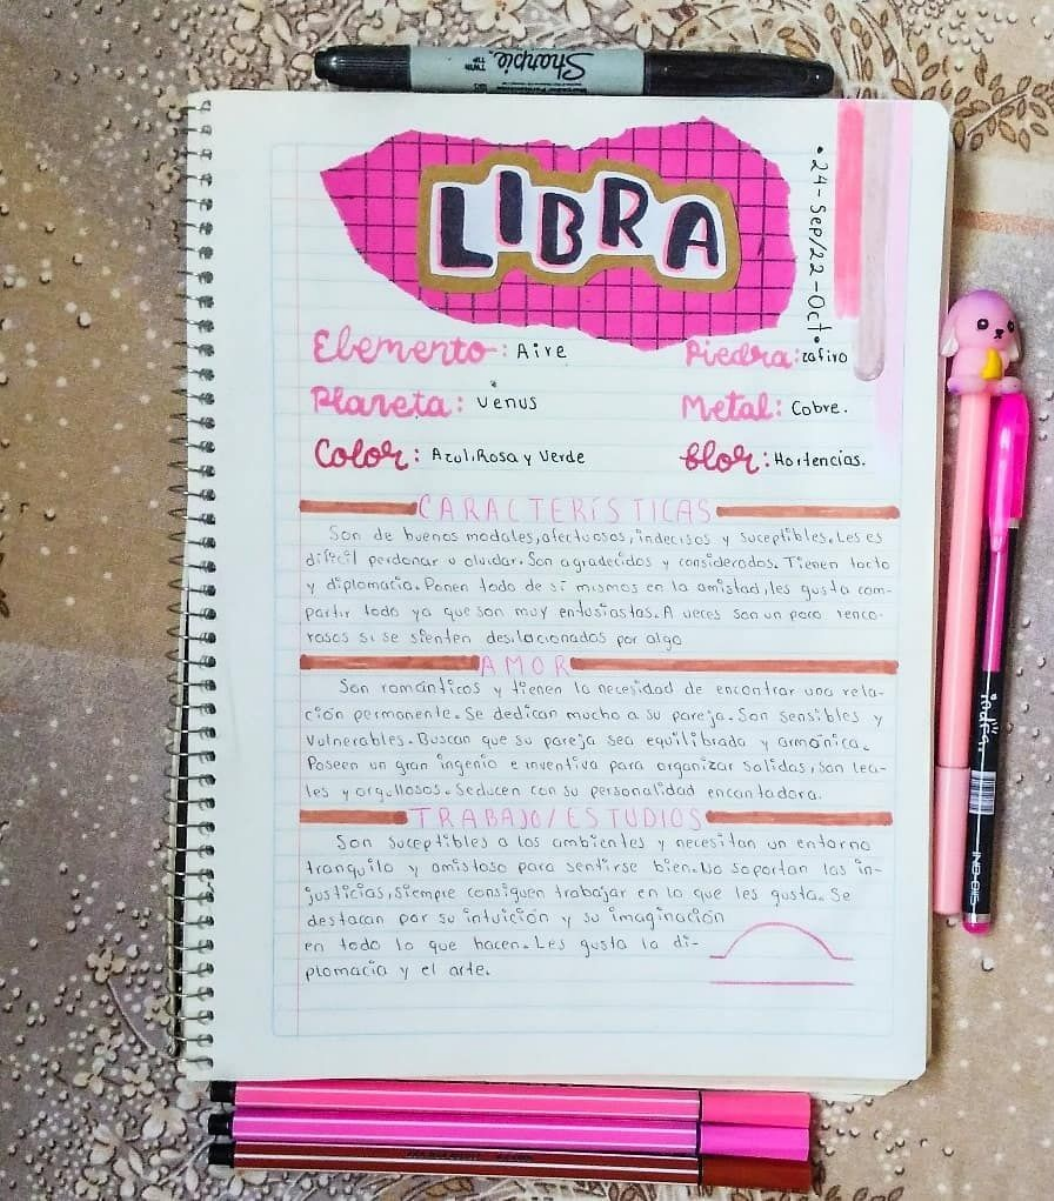 Sharpie.
TWIN TIP
LIBRA
• 24-Sep/22-Oct •
Elemento: Aire
Piedra: zafiro
Planeta: Venus
Metal: Cobre.
Color: Azul, Rosa y Verde
Flor: Hortencias.
CARACTERÍSTICAS
Son de buenos modales, afectuosos, indecisos y suceptibles. Les es
difícil perdonar u olvidar. Son agradecidos y considerados. Tienen tacto
y diplomacia. Ponen todo de sí mismos en la amistad, les gusta com-
partir todo ya que son muy entusiastas. A veces son un poco renco-
rosos si se sienten desilacionados por algo
AMOR
Son románticos y tienen la necesidad de encontrar una rela-
ción permanente. Se dedican mucho a su pareja. Son sensibles y
vulnerables. Buscan que su pareja sea equilibrada y armónica.
Poseen un gran ingenio e inventiva para organizar salidas, son lea-
les y orgullosos. Seducen con su personalidad encantadora.
TRABAJO/ESTUDIOS
Son suceptibles a los ambientes y necesitan un entorno
tranquilo y amistoso para sentirse bien. No soportan las in-
justicias, siempre consiguen trabajar en lo que les gusta. Se
destacan por su intuición y su imaginación
en todo lo que hacen. Les gusta la di-
plomacia y el arte.